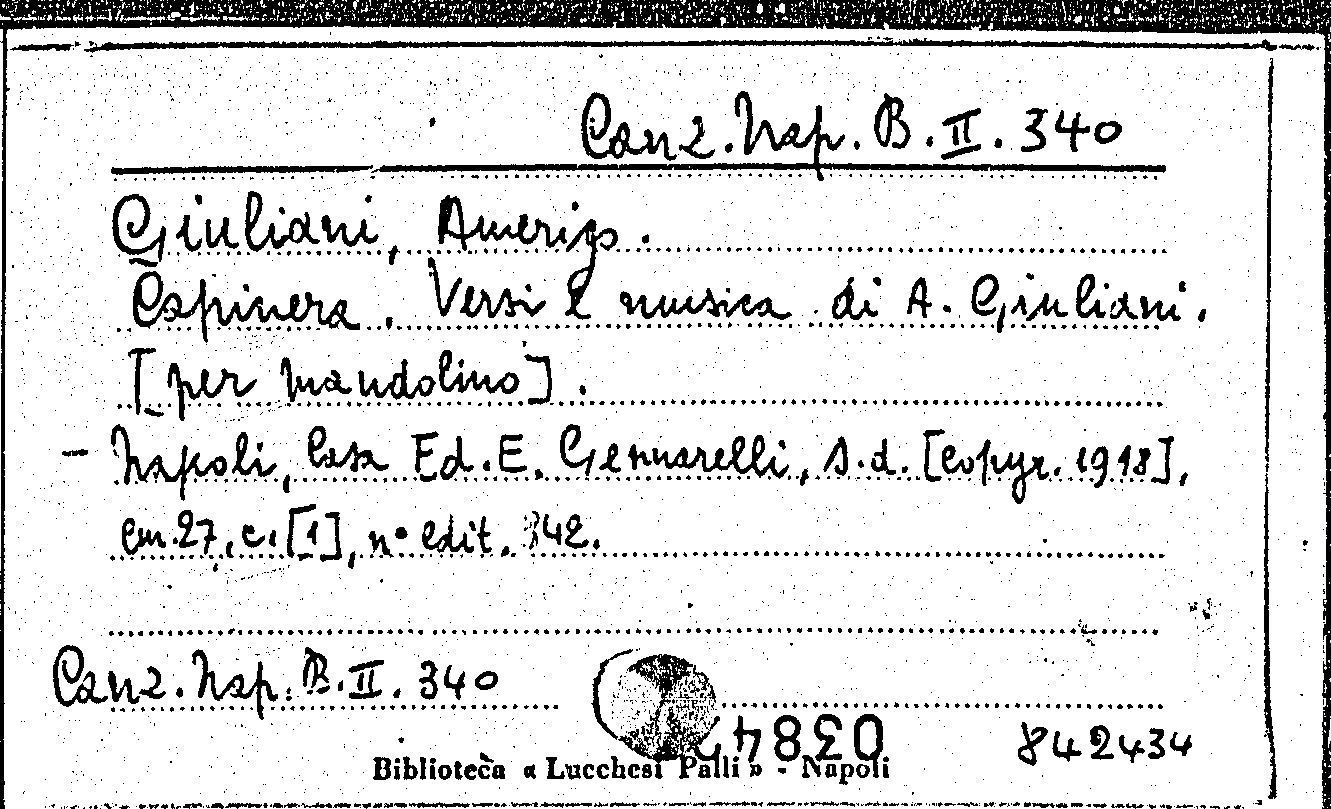 Canz. Nap. B. II. 340
Giuliani, Amerigo.
Capinera. Versi e musica di A. Giuliani.
[per mandolino].
- Napoli, Casa Ed. E. Gennarelli, s.d. [copyr. 1918],
cm. 27, c. [1], n° edit. 342.
Canz. Nap. B. II. 340
842434
Biblioteca « Lucchesi Palli » - Napoli